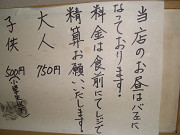 当店のお昼はバイキングに
なっております!
料金は食前にてレジで
精算お願いいたします
大人 750円
子供 500円